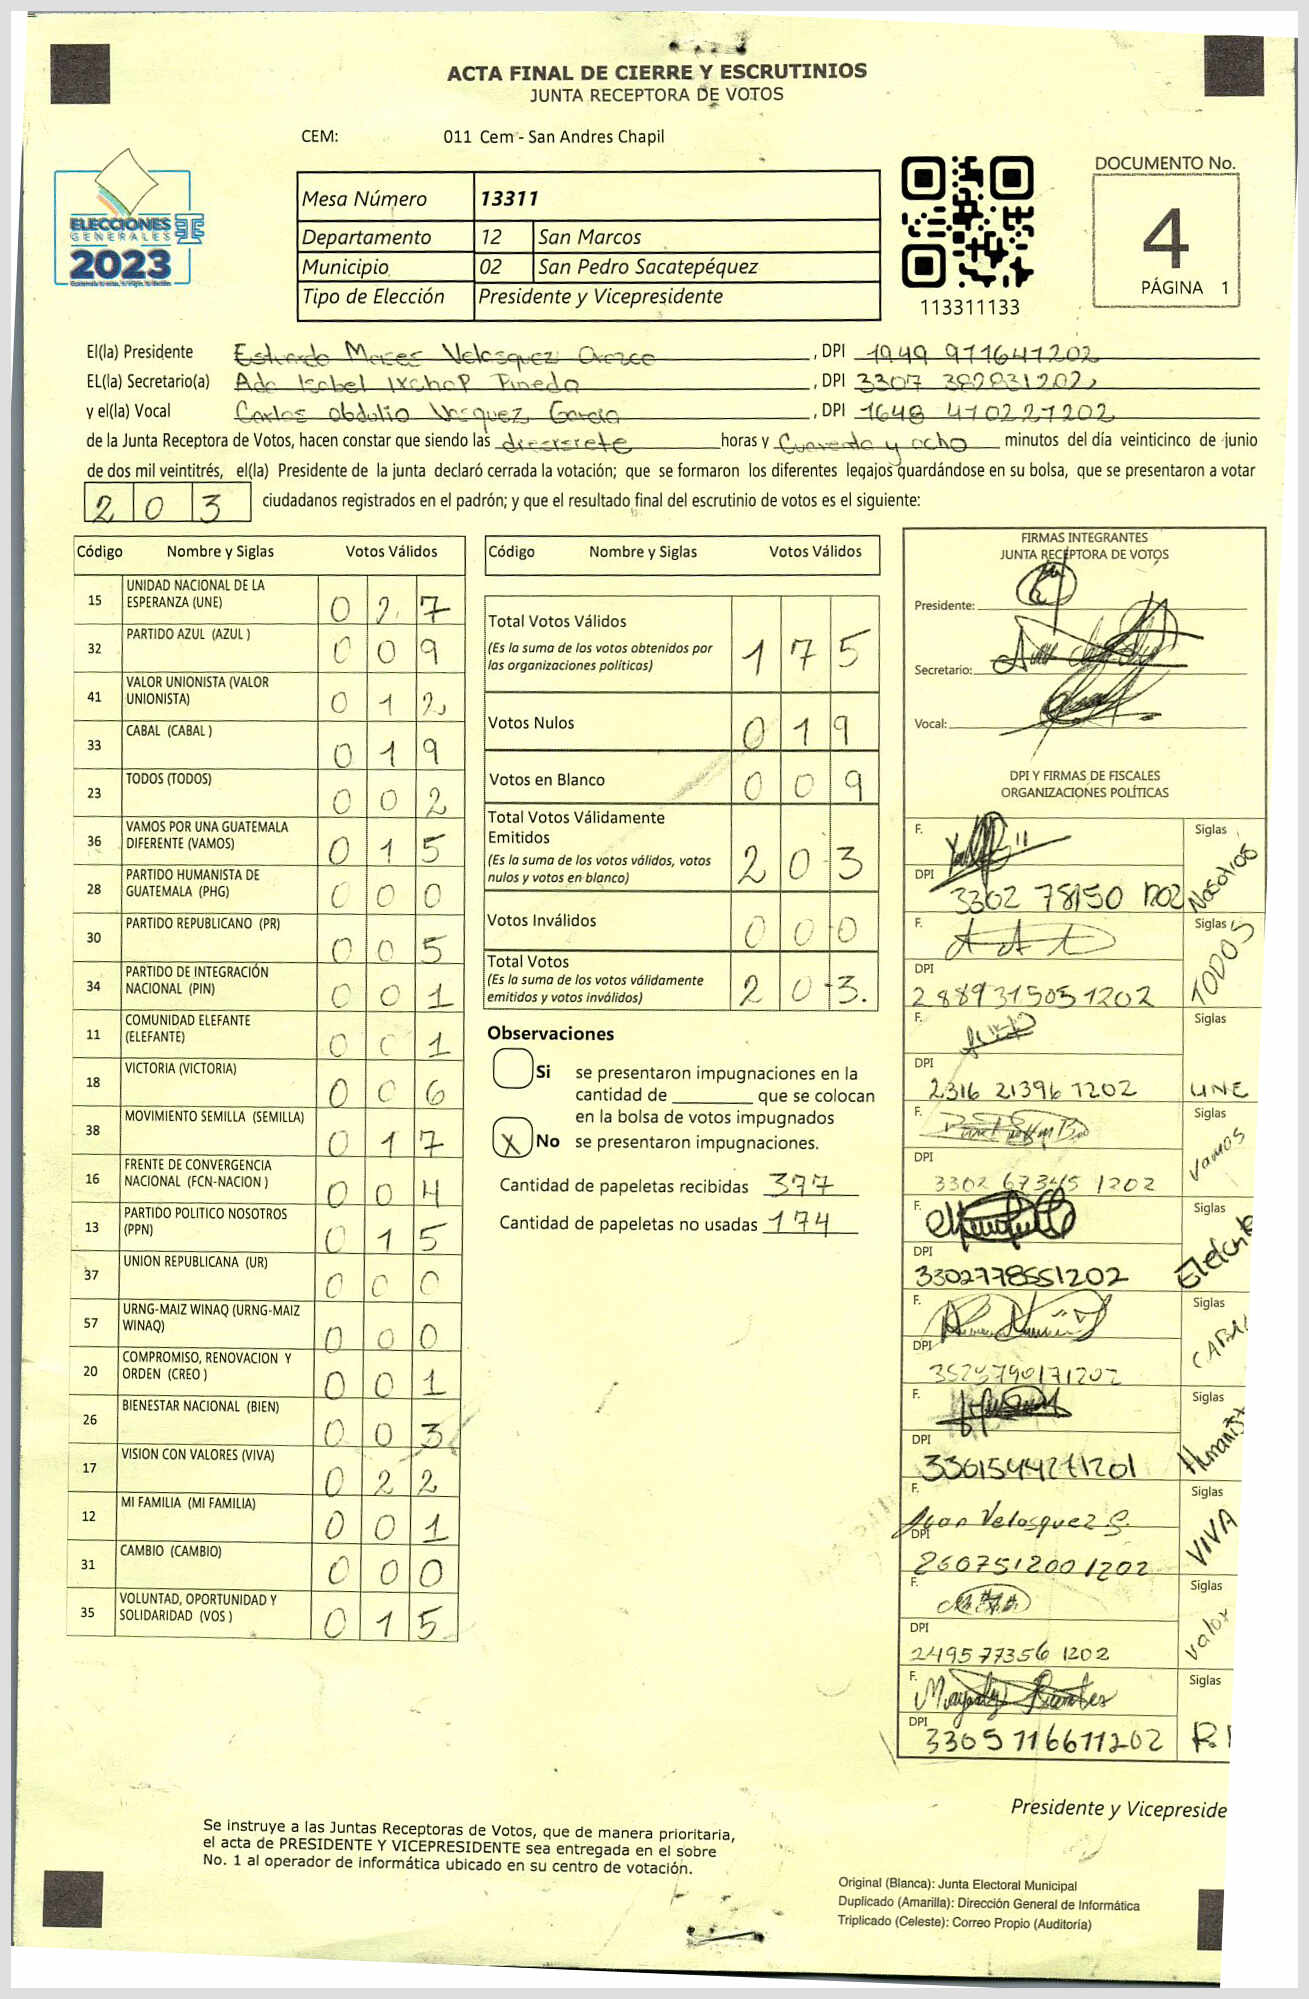 ACTA FINAL DE CIERRE Y ESCRUTINIOS
JUNTA RECEPTORA DE VOTOS
CEM: 011 Cem - San Andres Chapil
ELECCIONES
GENERALES
2023
Mesa Número 13311
Departamento 12 San Marcos
Municipio 02 San Pedro Sacatepéquez
Tipo de Elección Presidente y Vicepresidente
113311133
DOCUMENTO No.
4
PÁGINA 1
El(la) Presidente Estuardo Velasquez Orozco, DPI 1949 971641202
EL(la) Secretario(a) Ada Isabel Ixchop Pineda, DPI 3307 382831202
y el(la) Vocal Carlos Obdulio Vasquez Garcia, DPI 1648 410221202
de la Junta Receptora de Votos, hacen constar que siendo las diecisiete horas y Cuarenta y ocho minutos del día veinticinco de junio
de dos mil veintitrés, el(la) Presidente de la junta declaró cerrada la votación; que se formaron los diferentes legajos guardándose en su bolsa, que se presentaron a votar
203 ciudadanos registrados en el padrón; y que el resultado final del escrutinio de votos es el siguiente:
Código Nombre y Siglas Votos Válidos
15 UNIDAD NACIONAL DE LA ESPERANZA (UNE) 027
32 PARTIDO AZUL (AZUL ) 009
41 VALOR UNIONISTA (VALOR UNIONISTA) 012
33 CABAL (CABAL ) 019
23 TODOS (TODOS) 002
36 VAMOS POR UNA GUATEMALA DIFERENTE (VAMOS) 015
28 PARTIDO HUMANISTA DE GUATEMALA (PHG) 000
30 PARTIDO REPUBLICANO (PR) 005
34 PARTIDO DE INTEGRACIÓN NACIONAL (PIN) 001
11 COMUNIDAD ELEFANTE (ELEFANTE) 001
18 VICTORIA (VICTORIA) 006
38 MOVIMIENTO SEMILLA (SEMILLA) 017
16 FRENTE DE CONVERGENCIA NACIONAL (FCN-NACION ) 004
13 PARTIDO POLITICO NOSOTROS (PPN) 015
37 UNION REPUBLICANA (UR) 000
57 URNG-MAIZ WINAQ (URNG-MAIZ WINAQ) 000
20 COMPROMISO, RENOVACION Y ORDEN (CREO ) 001
26 BIENESTAR NACIONAL (BIEN) 003
17 VISION CON VALORES (VIVA) 022
12 MI FAMILIA (MI FAMILIA) 001
31 CAMBIO (CAMBIO) 000
35 VOLUNTAD, OPORTUNIDAD Y SOLIDARIDAD (VOS ) 015
Código Nombre y Siglas Votos Válidos
Total Votos Válidos 175
(Es la suma de los votos obtenidos por
las organizaciones políticas)
Votos Nulos 019
Votos en Blanco 009
Total Votos Válidamente
Emitidos 203
(Es la suma de los votos válidos, votos
nulos y votos en blanco)
Votos Inválidos 000
Total Votos 203.
(Es la suma de los votos válidamente
emitidos y votos inválidos)
Observaciones
Si se presentaron impugnaciones en la
cantidad de ________ que se colocan
en la bolsa de votos impugnados
X No se presentaron impugnaciones.
Cantidad de papeletas recibidas 377
Cantidad de papeletas no usadas 174
FIRMAS INTEGRANTES
JUNTA RECEPTORA DE VOTOS
Presidente:
Secretario:
Vocal:
DPI Y FIRMAS DE FISCALES
ORGANIZACIONES POLÍTICAS
F. Siglas Nosotros
DPI 3302 78150 1202
F. Siglas TODOS
DPI 288931505 1202
F. Siglas UNE
DPI 2316 21396 1202
F. Siglas Vamos
DPI 3302 67345 1202
F. Siglas Elefante
DPI 3302778551202
F. Siglas CABAL
DPI 3523790171202
F. Siglas Humanista
DPI 3301544271201
F. Juan Velasquez G. Siglas VIVA
DPI 260751200 1202
F. Siglas Valor
DPI 249577356 1202
F. Siglas
DPI 3305 116611202
Presidente y Vicepreside
Se instruye a las Juntas Receptoras de Votos, que de manera prioritaria,
el acta de PRESIDENTE Y VICEPRESIDENTE sea entregada en el sobre
No. 1 al operador de informática ubicado en su centro de votación.
Original (Blanca): Junta Electoral Municipal
Duplicado (Amarilla): Dirección General de Informática
Triplicado (Celeste): Correo Propio (Auditoría)